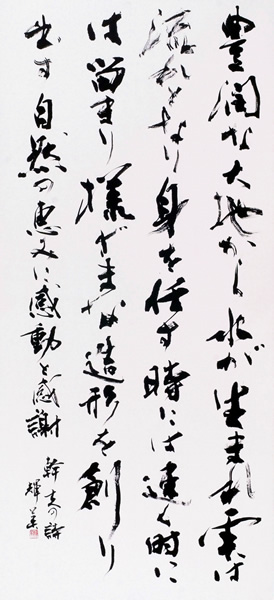 豊潤な大地から水が生まれ雫は
流れとなり身を任す時には速く時に
は留まり様ざまな造形を創り
出す自然の恵みに感動と感謝
幹夫の詩
輝